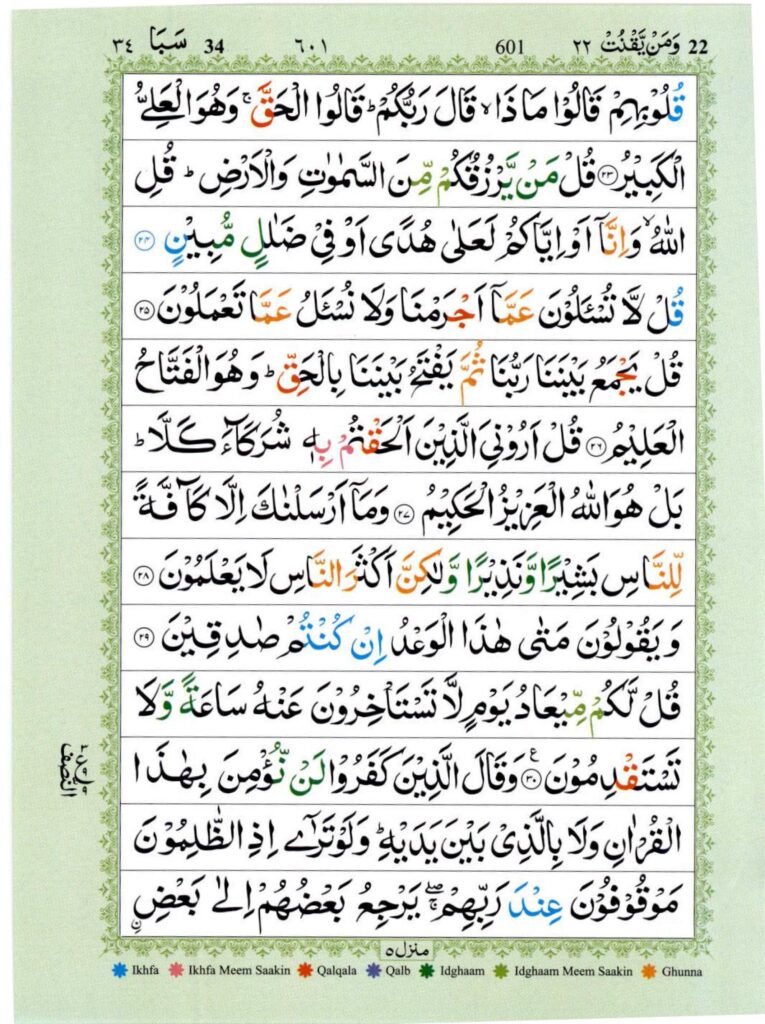 ٣٤ سَبَا 34 ٦٠١ 601 وَمَنْ يَّقْنُتْ ٢٢ 22
قُلُوْبِهِمْ قَالُوْا مَاذَا ۙ قَالَ رَبُّكُمْ ؕ قَالُوا الْحَقَّ ۚ وَهُوَ الْعَلِىُّ
الْكَبِيْرُ ﴿۲۳﴾ قُلْ مَنْ يَّرْزُقُكُمْ مِّنَ السَّمٰوٰتِ وَالْاَرْضِ ؕ قُلِ
اللّٰهُ ۙ وَاِنَّاۤ اَوْ اِيَّاكُمْ لَعَلٰى هُدًى اَوْ فِىْ ضَلٰلٍ مُّبِيْنٍ ﴿۲۴﴾
قُلْ لَّا تُسْــَٔلُوْنَ عَمَّاۤ اَجْرَمْنَا وَلَا نُسْــَٔلُ عَمَّا تَعْمَلُوْنَ ﴿۲۵﴾
قُلْ يَجْمَعُ بَيْنَنَا رَبُّنَا ثُمَّ يَفْتَحُ بَيْنَنَا بِالْحَقِّ ؕ وَهُوَ الْفَتَّاحُ
الْعَلِيْمُ ﴿۲۶﴾ قُلْ اَرُوْنِىَ الَّذِيْنَ اَلْحَقْتُمْ بِهٖ شُرَكَآءَ كَلَّا ؕ
بَلْ هُوَ اللّٰهُ الْعَزِيْزُ الْحَكِيْمُ ﴿۲۷﴾ وَمَاۤ اَرْسَلْنٰكَ اِلَّا كَآفَّةً
لِّلنَّاسِ بَشِيْرًا وَّنَذِيْرًا وَّلٰكِنَّ اَكْثَرَ النَّاسِ لَا يَعْلَمُوْنَ ﴿۲۸﴾
وَيَقُوْلُوْنَ مَتٰى هٰذَا الْوَعْدُ اِنْ كُنْتُمْ صٰدِقِيْنَ ﴿۲۹﴾
قُلْ لَّكُمْ مِّيْعَادُ يَوْمٍ لَّا تَسْتَاْخِرُوْنَ عَنْهُ سَاعَةً وَّلَا
تَسْتَقْدِمُوْنَ ﴿۳۰﴾ ع وَقَالَ الَّذِيْنَ كَفَرُوْا لَنْ نُّؤْمِنَ بِهٰذَا
الْقُرْاٰنِ وَلَا بِالَّذِىْ بَيْنَ يَدَيْهِ ؕ وَلَوْ تَرٰٓى اِذِ الظّٰلِمُوْنَ
مَوْقُوْفُوْنَ عِنْدَ رَبِّهِمْ ۖۚ يَرْجِعُ بَعْضُهُمْ اِلٰى بَعْضِ ِۨ
النصف
منزل ٥
Ikhfa Ikhfa Meem Saakin Qalqala Qalb Idghaam Idghaam Meem Saakin Ghunna